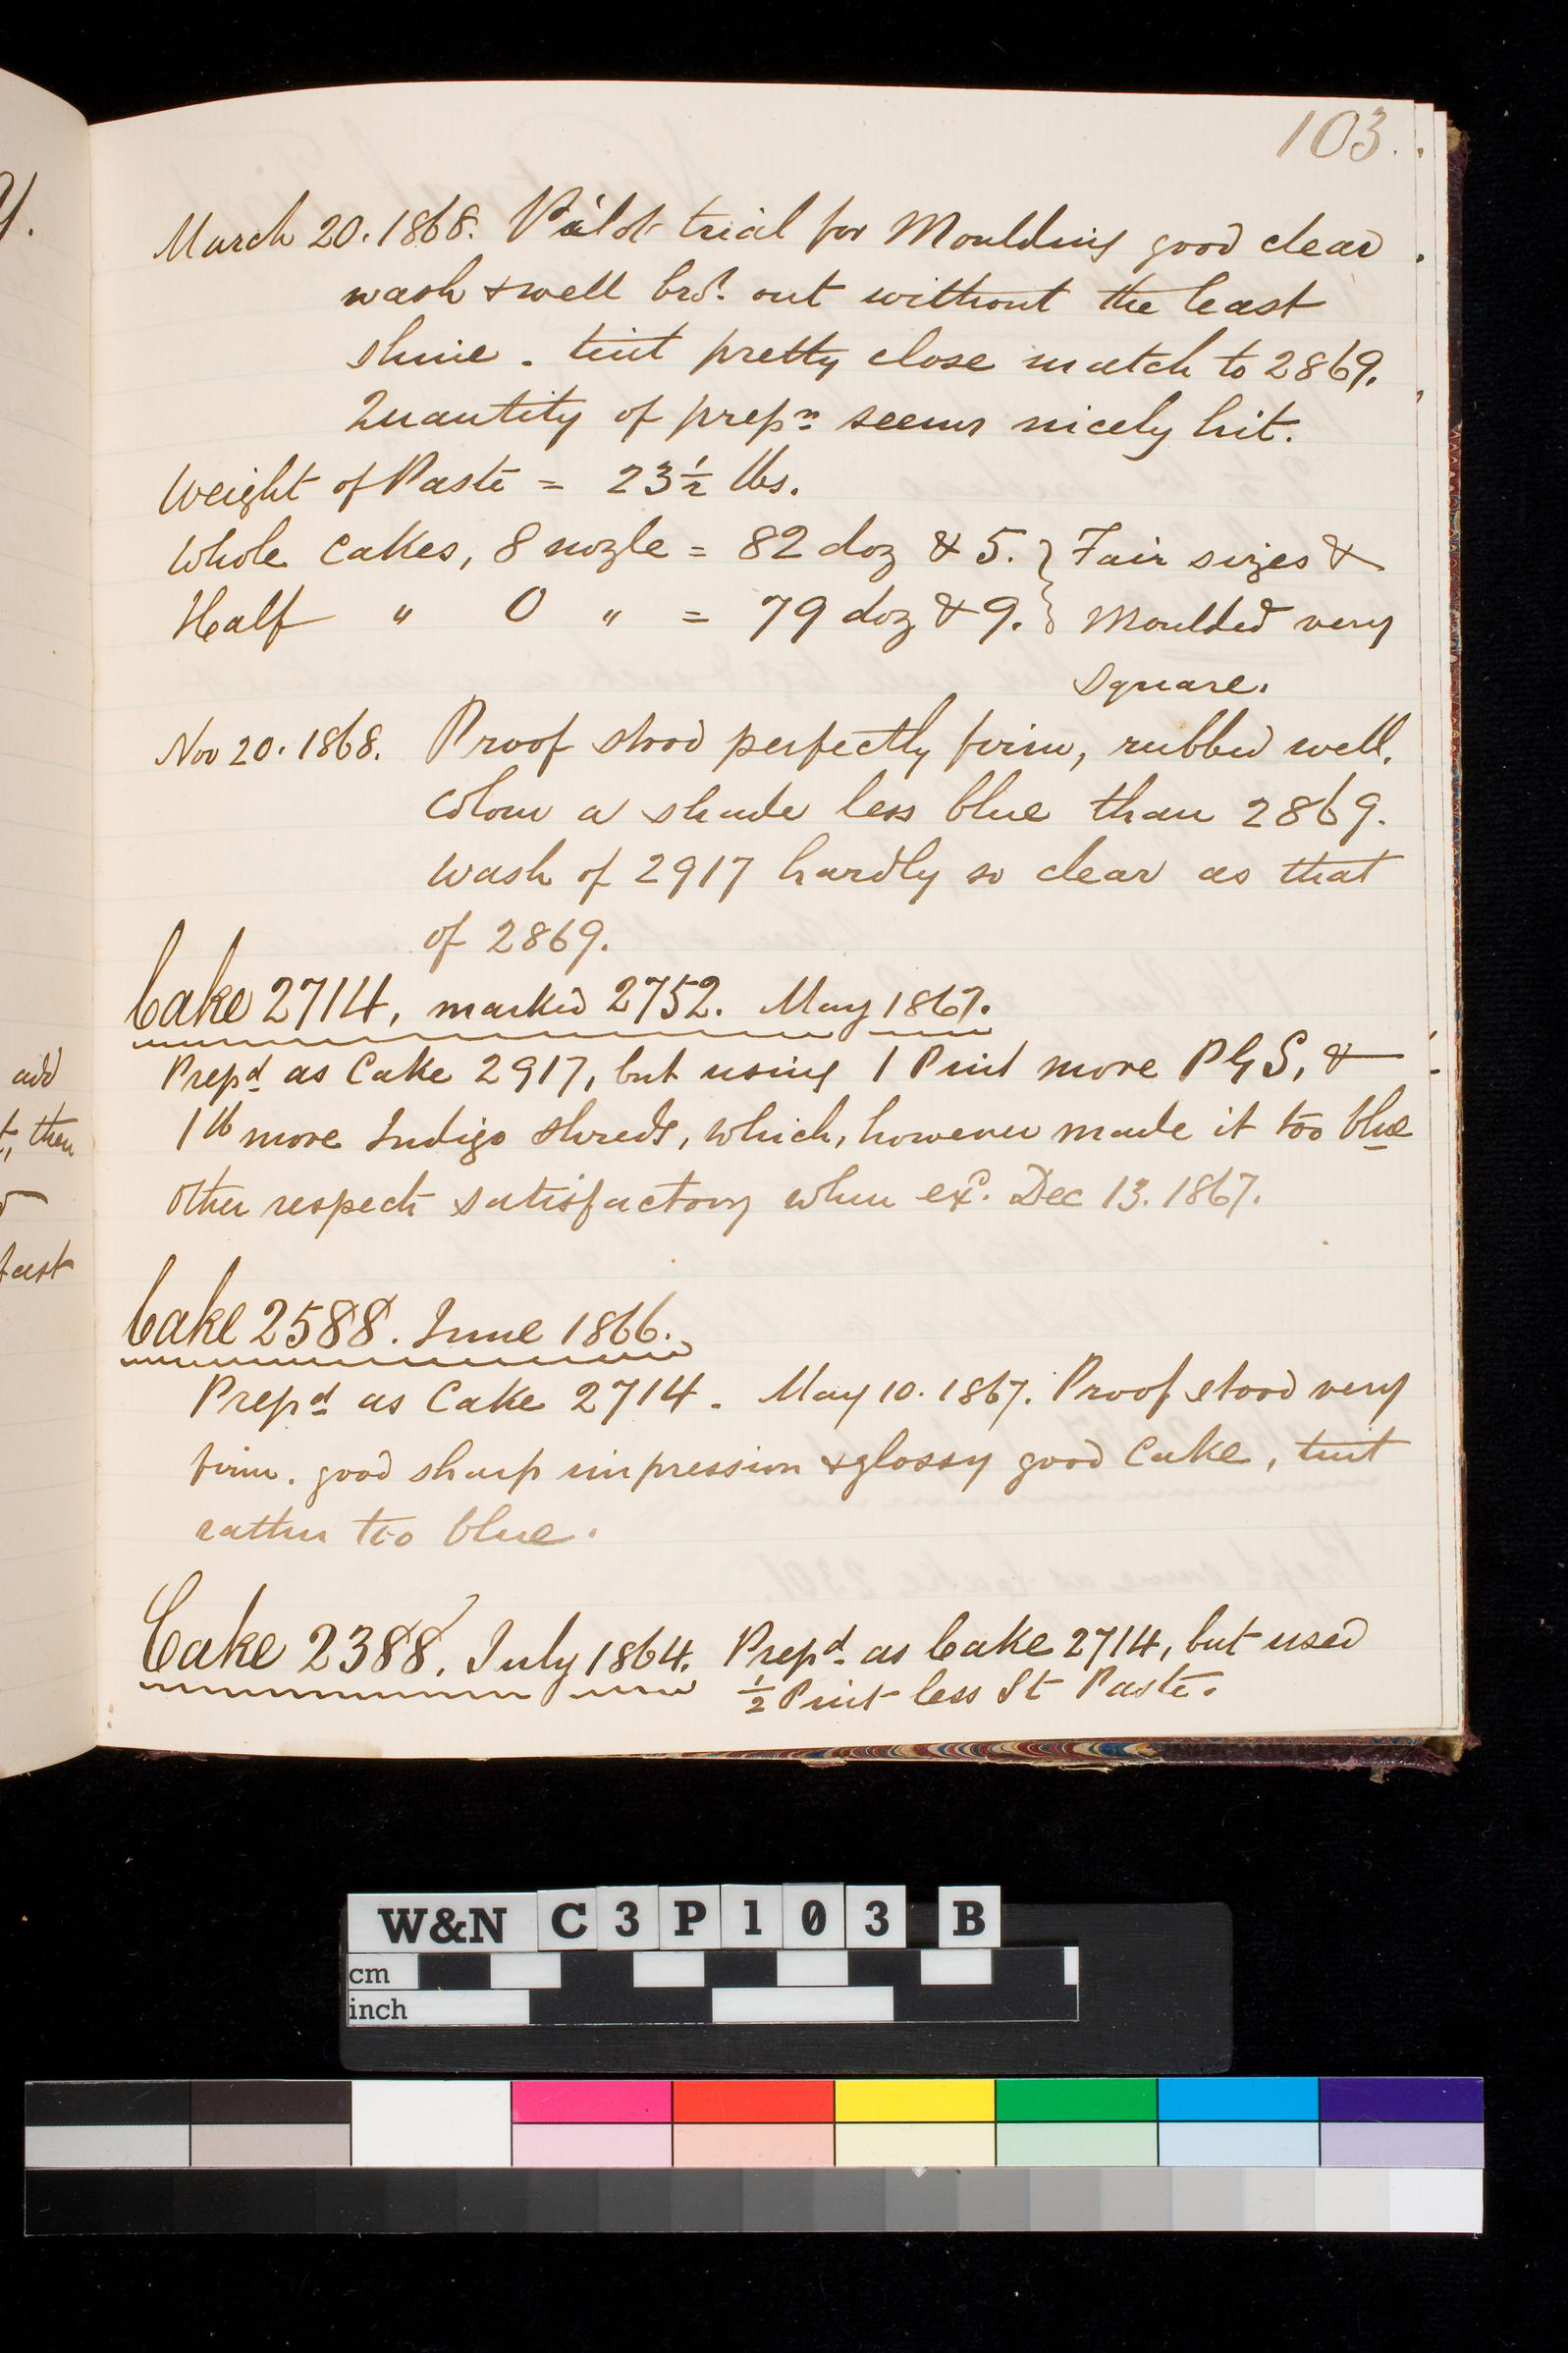 103.
March 20. 1868. Pal'd trial for Moulding good clear
wash & well brd. out without the least
shine. tint pretty close match to 2869.
Quantity of prepn seems nicely hit.
Weight of Paste = 23 1/2 lbs.
Whole Cakes, 8 nozle = 82 doz & 5. } Fair sizes &
Half " 0 " = 79 doz & 9. } Moulded very
square.
Nov 20. 1868. Proof stood perfectly firm, rubbed well.
Colour a shade less blue than 2869.
Wash of 2917 hardly so clear as that
of 2869.
Cake 2714, marked 2752. May 1867.
Prepd as Cake 2917, but using 1 Pint more PGS, &
1 lb more Indigo shreds, which, however made it too blue
other respects satisfactory when exd. Dec 13. 1867.
Cake 2588. June 1866.
Prepd as Cake 2714. May 10. 1867. Proof stood very
firm. good sharp impression & glossy good Cake, tint
rather too blue.
Cake 2388. July 1864. Prepd as Cake 2714, but used
1/2 Pint less St Paste.
add
then
fast
W&N C3P103 B
cm
inch